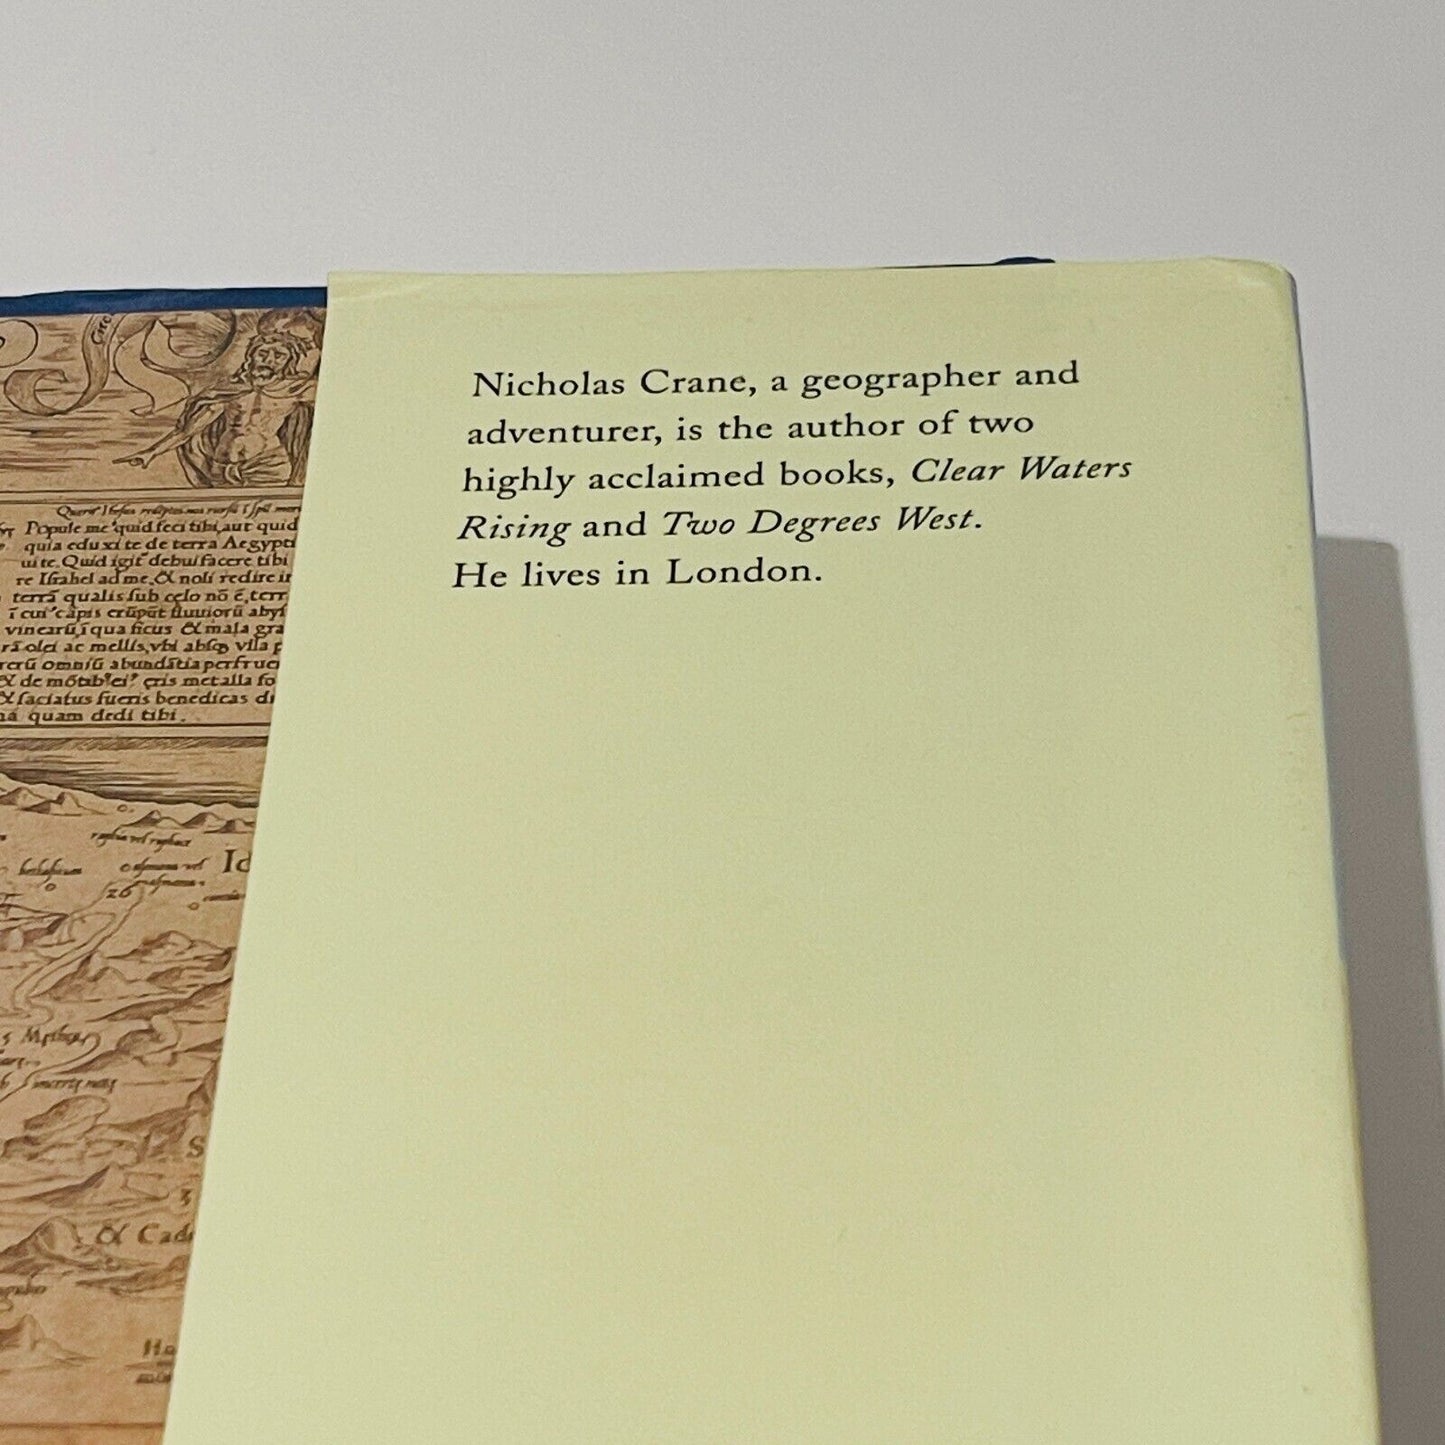 Nicholas Crane, a geographer and
adventurer, is the author of two
highly acclaimed books, Clear Waters
Rising and Two Degrees West.
He lives in London.
Popule me quid feci tibi, aut quid
quia eduxi te de terra Aegypti
ui te. Quid igit debui facere tibi
re Israhel ad me, & noli redire in
terrā qualis sub celo nō ē, terr
vinearū, ī qua ficus & mala gra
rā olei ac mellis, vbi absq vlla p
rerū omniū abundātia perfrue
& saciatus fueris benedicas di
quam dedi tibi.
Id
26
S
3
& Cad